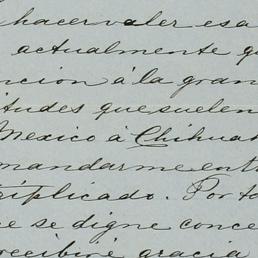 hacer valer esa
actualmente q
ncion á la gran
itudes que suelen
Mexico á Chihuah
mandarme entr
triplicado. Por to
ce se digne conce
recibiré gracia